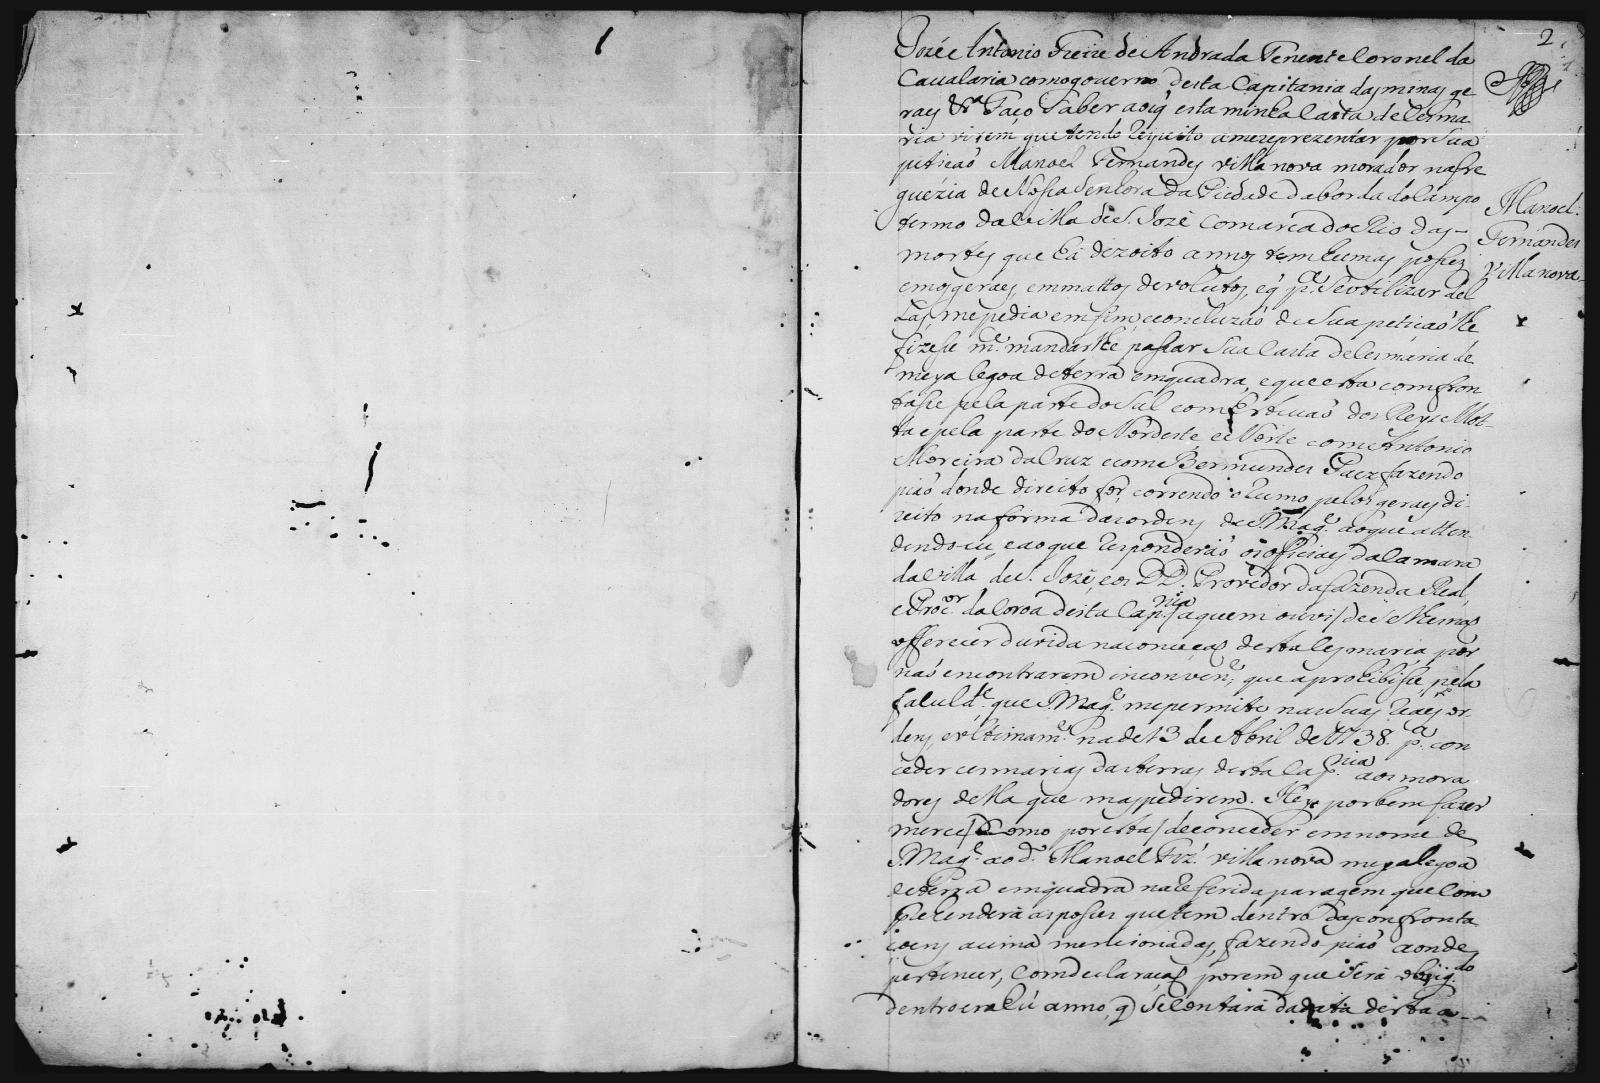 2
Jozé Antonio Freire de Andrada Tenente Coronel da
Cauallaria comogouerno desta Capitania das minas ge
raes &ª Faço saber aos q̃ esta minha Carta de Cesma
ria virem que tendo respeito a mereprezentar por sua
petiçaõ Manoel Fernandes villa nova morador nafre
guezia de Nossa Senhora da Piedade da borda do Campo
termo dalvilla de S. Jozé Comarca do Rio das
mortes que há dezoito annos tem humas posses
emos geraes em mattos devolutos, e q̃ p.ª se utilizar del
las, me pedia em fim, e concluzaõ de sua petiçaõ lhe
fizesse m.ᶜᵉ mandar lhe passar sua Carta de Cesmaria de
meya legoa de terra em quadra, e que esta comfron
tasse pela parte do Sul com
ta e pela parte do Nordeste, e Norte com Antonio
Moreira da Cruz e com Bermundes Paez fazendo
piaõ donde direito for, correndo o rumo pelos geraes di
reito na forma das ordens de S. Mag.ᵉ ao que atten
dendo eu, e ao que responderaõ os officiaes da Camara
da Villa de S. Jozé, e os DD. Provedor da fazenda Real,
e Proc.ᵒʳ da Coroa desta Cap.ⁿⁱᵃ / a quem ouvi / de se lhe naõ
offerecer duvida na conceçaõ desta cesmaria, por
naõ encontrarem inconven.ᵉ, que a prohibisse, pela
facul.ᵈᵉ que S. Mag.ᵉ me permite nas suas reaes or
dens, e ultimam.ᵉ na de 13 de Abril de 1738. p.ª con
ceder cesmarias das terras desta Cap.ⁿⁱᵃ aos mora
dores della que mas pedirem. Hey por bem fazer
merce / Como por esta / de conceder em nome de
S. Mag.ᵉ ao d.º Manoel Frz̃ villa nova meya legoa
de terra em quadra na referida paragem que Com
prehenderá as posses que tem dentro das confronta
çoens acima mencionadas, fazendo piaõ aonde
pertencer, Com declaraçaõ porem que será obrig.ᵈᵒ
dentro em hũ anno, q̃ se contará da data desta a
Manoel
Fernandes
Villanova